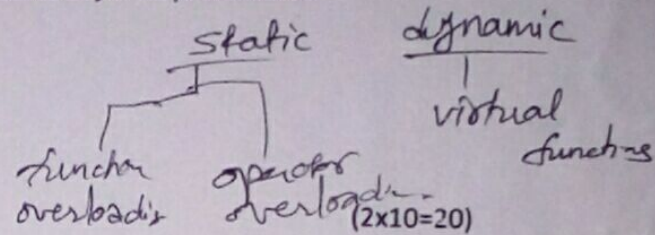 static dynamic
virtual
functions
function operator
overloading overloading
(2x10=20)